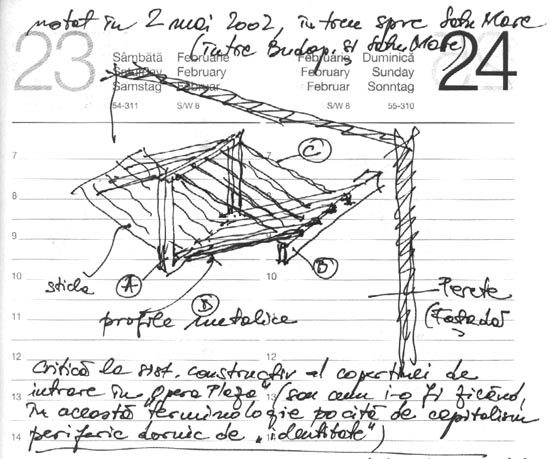 notat în 2 mai 2002, în tren spre Satu Mare
(între Budap. și Satu Mare)
23
Sâmbătă Februarie
Saturday February
Samstag Februar
54-311 S/W 8
Februarie Duminică
February Sunday
Februar Sonntag
S/W 8 55-310
24
7
8
9
10
11
12
13
14
7
8
9
10
11
12
C
A
B
D
sticla
profile metalice
Perete
(Fațadă
Critică la sist. constructiv al copertinei de
intrare în "Opera Plaza" (sau cum i-o fi zicând,
în această terminologie pocită de capitalism
periferic dornic de "identitate")